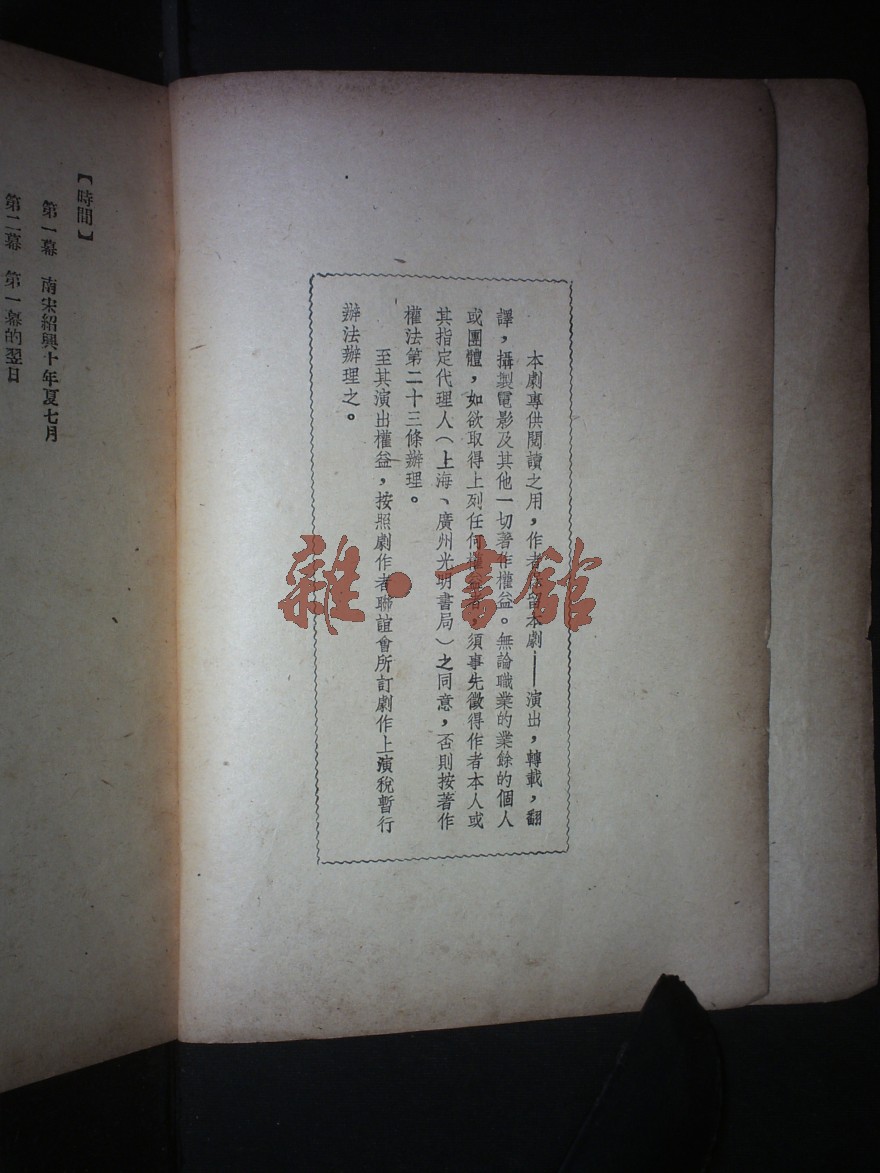 本劇專供閱讀之用，作者保留本劇——演出，轉載，翻
譯，攝製電影及其他一切著作權益。無論職業的業餘的個人
或團體，如欲取得上列任何權益者，須事先徵得作者本人或
其指定代理人（上海、廣州光明書局）之同意，否則按著作
權法第二十三條辦理。
至其演出權益，按照劇作者聯誼會所訂劇作上演稅暫行
辦法辦理之。
【時間】
第一幕　南宋紹興十年夏七月
第二幕　第一幕的翌日
雜·書館